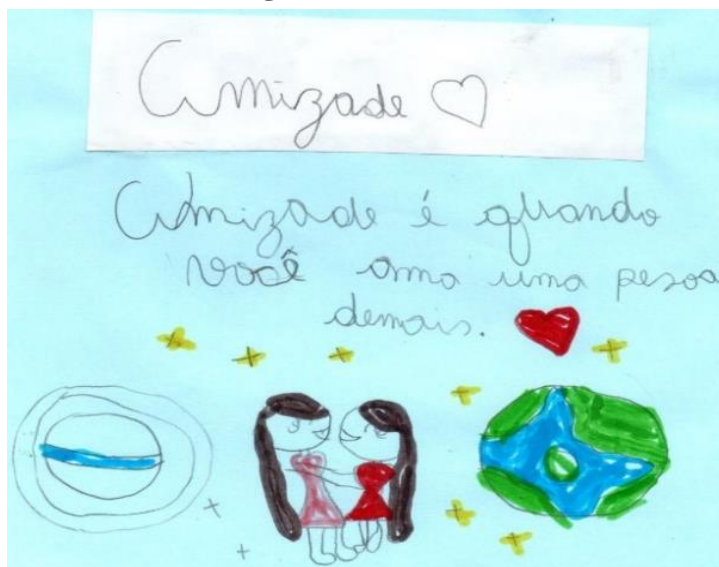 Amizade ♡
Amizade é quando
você ama uma pesoa
demais.